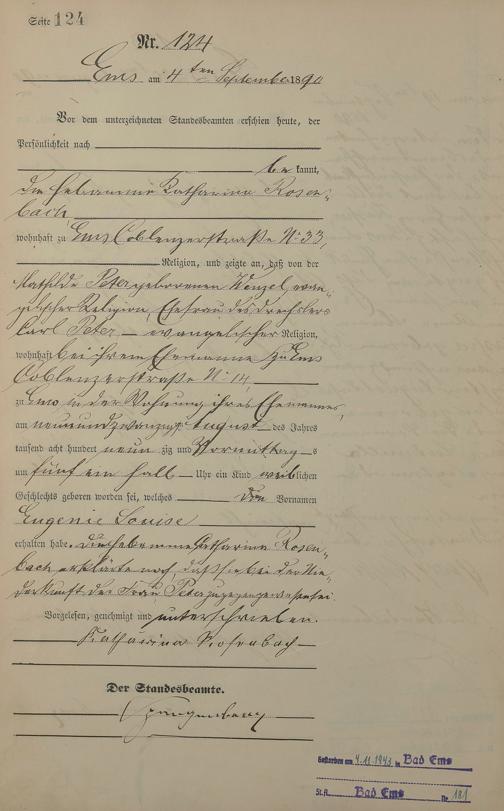 Seite 124
Nr. 124
Ems am 4 ten September 1890
Vor dem unterzeichneten Standesbeamten erschien heute, der
Persönlichkeit nach
bekannt,
die Hebamme Katharina Rosen-
bach,
wohnhaft zu Ems Coblenzerstraße No 33,
Religion, und zeigte an, daß von der
Mathilde Peter geborenen Wenzel, evan-
gelischer Religion, Ehefrau des Drechslers
Carl Peter evangelischer Religion,
wohnhaft bei ihrem Ehemanne zu Ems
Coblenzerstraße No 14,
zu Ems in der Wohnung ihres Ehemannes,
am neunundzwanzigsten August des Jahres
tausend acht hundert neunzig und Vormittags
um fünf ein halb Uhr ein Kind weiblichen
Geschlechts geboren worden sei, welches den Vornamen
Eugenie Louise
erhalten habe. Die Hebamme Katharina Rosen-
bach erklärte noch daß sie bei der Nie-
derkunft der Frau Peter zugegen gewesen sei.
Vorgelesen, genehmigt und unterschrieben.
Katharina Rosenbach
Der Standesbeamte.
Spangenberg
Gestorben am 4.11.1943 in Bad Ems
St.A. Bad Ems Nr 181